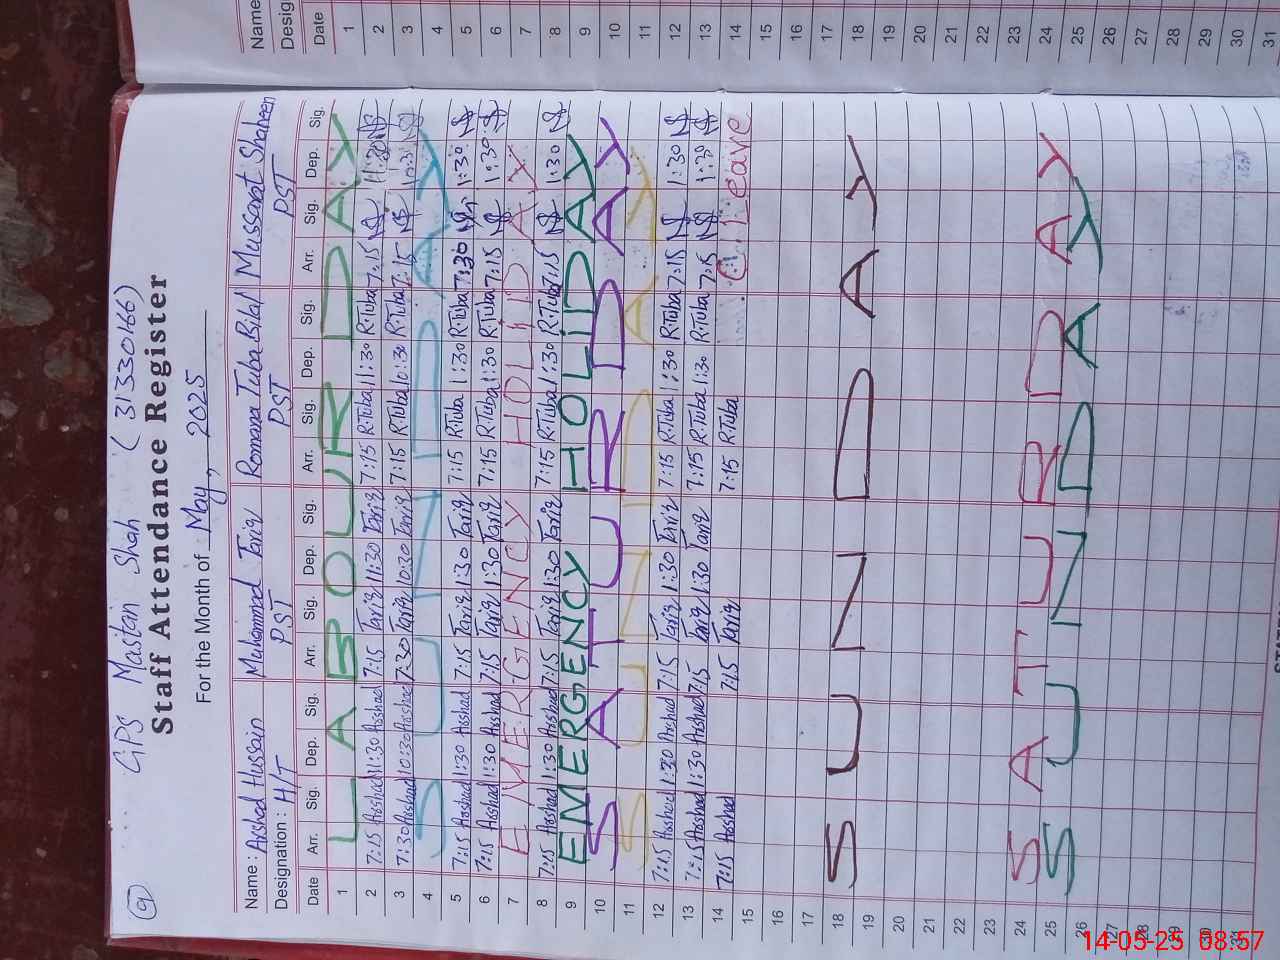 9
GPS Mastain Shah (31330166)
Staff Attendance Register
For the Month of May, 2025
Name: Arshad Hussain Muhammad Tariq Romana Tuba Bilal Mussarat Shaheen
Designation: H/T PST PST PST
Date Arr. Sig. Dep. Sig. Arr. Sig. Dep. Sig. Arr. Sig. Dep. Sig. Arr. Sig. Dep. Sig.
1 LABOUR DAY
2 7:15 Arshad 11:30 Arshad 7:15 Tariq 11:30 Tariq 7:15 R.Tuba 11:30 R.Tuba 7:15 11:30
3 7:30 Arshad 10:30 Arshad 7:30 Tariq 10:30 Tariq 7:15 R.Tuba 10:30 R.Tuba 7:15 10:30
4 SUNDAY
5 7:15 Arshad 1:30 Arshad 7:15 Tariq 1:30 Tariq 7:15 R.Tuba 1:30 R.Tuba 7:30 1:30
6 7:15 Arshad 1:30 Arshad 7:15 Tariq 1:30 Tariq 7:15 R.Tuba 1:30 R.Tuba 7:15 1:30
7 EMERGENCY HOLIDAY
8 7:15 Arshad 1:30 Arshad 7:15 Tariq 1:30 Tariq 7:15 R.Tuba 1:30 R.Tuba 7:15 1:30
9 EMERGENCY HOLIDAY
10 SATURDAY
11 SUNDAY
12 7:15 Arshad 1:30 Arshad 7:15 Tariq 1:30 Tariq 7:15 R.Tuba 1:30 R.Tuba 7:15 1:30
13 7:15 Arshad 1:30 Arshad 7:15 Tariq 1:30 Tariq 7:15 R.Tuba 1:30 R.Tuba 7:15 1:30
14 7:15 Arshad 7:15 Tariq 7:15 R.Tuba C.Leave
15
16
17
18 SUNDAY
19
20
21
22
23
24 SATURDAY
25 SUNDAY
26
27
28
29
30
31
Name
Desig
Date 1 2 3 4 5 6 7 8 9 10 11 12 13 14 15 16 17 18 19 20 21 22 23 24 25 26 27 28 29 30 31
14-05-25 08:57